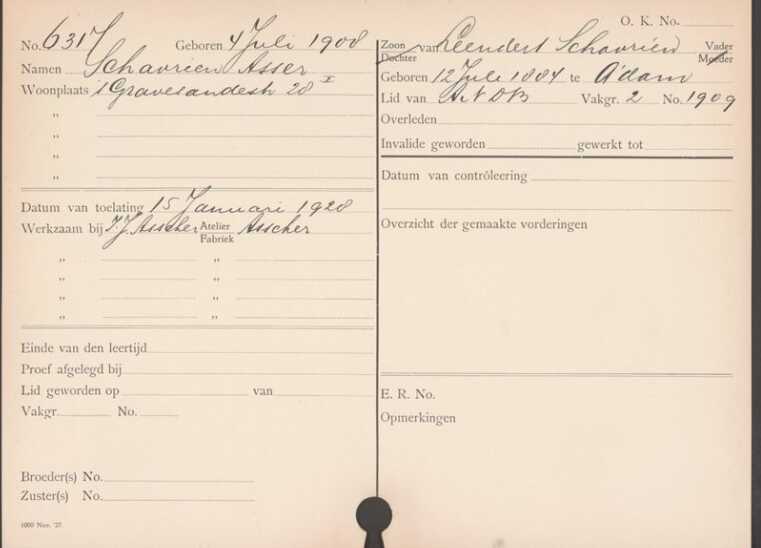 No. 6317 Geboren 4 Juli 1908
Namen Schavrien Asser
Woonplaats 's Gravesandestr 28 I
"
"
"
"
Datum van toelating 15 Januari 1928
Werkzaam bij I.J. Asscher Atelier Fabriek Asscher
" "
" "
" "
" "
Einde van den leertijd
Proef afgelegd bij
Lid geworden op van
Vakgr. No.
Broeder(s) No.
Zuster(s) No.
1000 Nov. '27.
O. K. No.
Zoon Dochter van Leendert Schavrien Vader Moeder
Geboren 12 Juli 1884 te A'dam
Lid van ANDB Vakgr. 2 No. 1909
Overleden
Invalide geworden gewerkt tot
Datum van contrôleering
Overzicht der gemaakte vorderingen
E. R. No.
Opmerkingen